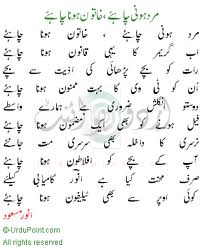 مرد ہونی چاہئے، خاتون ہونا چاہئے
مرد ہونی چاہئے ، خاتون ہونا چاہئے
اب گریمر کا یہی قانون ہونا چاہئے
رات کو بچے پڑھائی کی اذیت سے بچے
ان کو ٹی وی کا بہت ممنون ہونا چاہئے
دوستو انگلش ضروری ہے ہمارے واسطے
فیل ہونے کو بھی ایک مضمون ہونا چاہئے
نرسری کا داخلہ بھی سرسری مت جانئے
آپ کے بچے کو افلاطون ہونا چاہئے
صرف محنت کیا ہے انور کامیابی کیلئے
کوئی اوپر سے بھی ٹیلیفون ہونا چاہئے
انور مسعود
©UrduPoint.com
All rights reserved